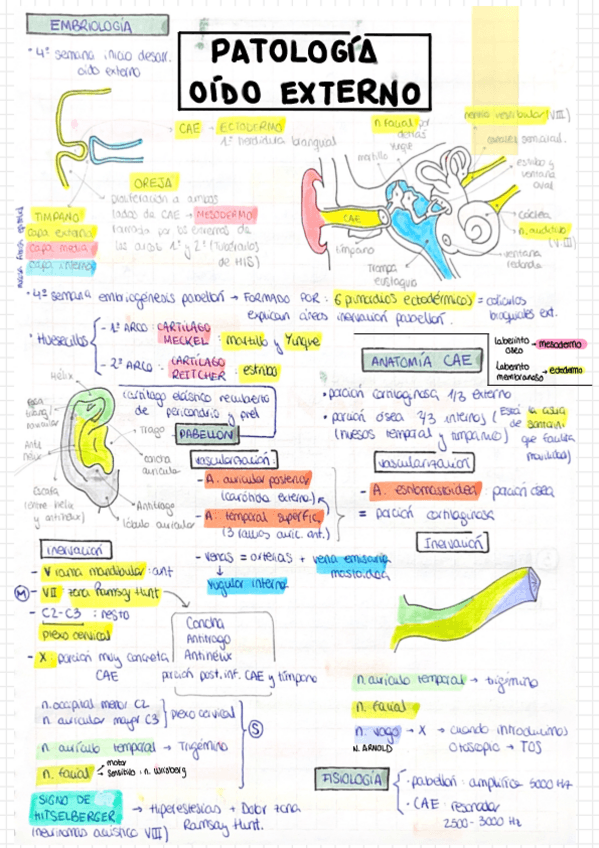 EMBRIOLOGÍA
· 4ª semana inicio desarr.
oído externo
PATOLOGÍA
OÍDO EXTERNO
CAE → ECTODERMO
1ª hendidura branquial
OREJA
proliferación a ambos
lados de CAE → MESODERMO
formada por los extremos de
los arcos 1º y 2º (Tubérculos
de HIS)
TÍMPANO
capa externa
capa media
capa interna
n. facial por
detrás
yunque
martillo
nervio vestibular (VIII)
canales semicircul.
estribo y
ventana
oval
cóclea
n. auditivo
(VIII)
ventana
redonda
CAE
tímpano
Trompa
eustaquio
· 4ª semana embriogénesis pabellón → FORMADO POR: 6 mamelones ectodérmicos = colículos
explican áreas inervación pabellón. branquiales ext.
· Huesecillos
- 1º ARCO: CARTÍLAGO
MECKEL : martillo y Yunque
- 2º ARCO: CARTÍLAGO
REITCHER : estribo
laberinto
óseo → mesodermo
Laberinto
membranoso → ectodermo
ANATOMÍA CAE
· porción cartilaginosa 1/3 externo
· porción ósea 2/3 internos (Está la cisura
(huesos temporal y timpánico) de Santorini
que facilita
movilidad)
hélix
fosa
triang/
navicular
Anti
hélix
Escafa
(entre hélix
y antihélix)
Trago
concha
auricular
Antitrago
lóbulo auricular
cartílago elástico recubierto
de pericondrio y piel
PABELLÓN
vascularización:
- A. auricular posterior
(carótida externa)
- A. temporal superfic.
(3 ramas auric. ant.)
- venas = arterias + vena emisaria
mastoidea
Yugular interna
vascularización
- A. estilomastoidea: porción ósea
= porción cartilaginosa
Inervación
- V rama mandibular: ant
(M) - VII zona Ramsay Hunt
- C2-C3 : resto
plexo cervical
- X: porción muy concreta
CAE
Concha
Antitrago
Antihélix
porción post. inf. CAE y tímpano
n. occipital menor C2
n. auricular mayor C3
plexo cervical
n. aurículo temporal → Trigémino
n. facial
motor
sensitivo: n. wrisberg
(S)
SIGNO DE
HITSELBERGER
(neurinomas acústico VIII)
→ Hiperestesias + Dolor zona
Ramsay Hunt.
Inervación
n. aurículo temporal → trigémino
n. facial
n. vago → X → cuando introducimos
N. ARNOLD
otoscopio → TOS
FISIOLOGÍA
· pabellón: amplifica 5000 Hz
· CAE: resonador
2500 - 3000 Hz